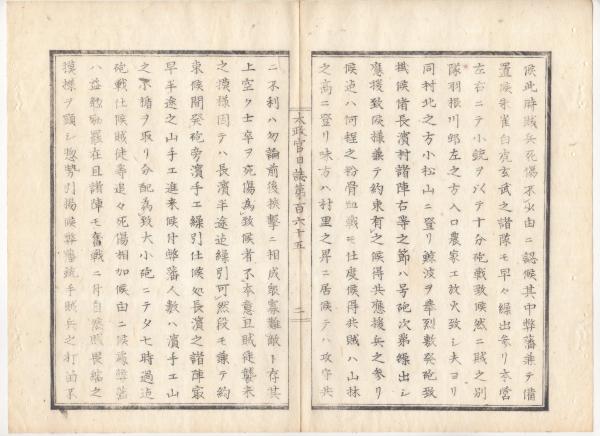 候此時賊兵死傷不少由ニ認候其中弊藩兼テ備
置候朱雀白虎玄武之諸隊モ早々繰出参リ本営
左右ニテ小銃ヲ以テ十分砲戦致候然ニ賊之別
隊羽根川邨左之方入口農家エ放火致シ夫ヨリ
同村北之方小松山ニ登リ鯨波ヲ挙烈敷発砲致
機候者長濱村諸陣右等之節ハ号砲次第繰出シ
應援致候様兼テ約束有之候得共應援兵之参リ
候迠ハ何程之粉骨血戦モ仕度候得共賊ハ山林
之高ニ登リ味方ハ村里之昇ニ居候テハ攻守共
太政官日誌第百六十五
二
ニ不利ハ勿論前後挾撃ニ相成衆寡難敵ト存其
上空ク士卒ヲ死傷為致候者不本意且賊徒襲来
之模様因テハ長濱半途迠繰引可然段モ兼テ約
束候間発砲旁濱手エ繰引仕候処長濱之諸陣最
早半途之山手エ進来候付弊藩人数ハ濱手エ山
之小楯ヲ取リ分配為致大小砲ニテ夕七時過迠
砲戦仕候賊徒等追々死傷相加候由ニ候處弊藩
ハ益勉勵罷在且諸陣モ奮戦ニ付自然賊畏縮之
摸様ヲ顕シ惣勢引揚候弊藩銃手賊兵之打留不